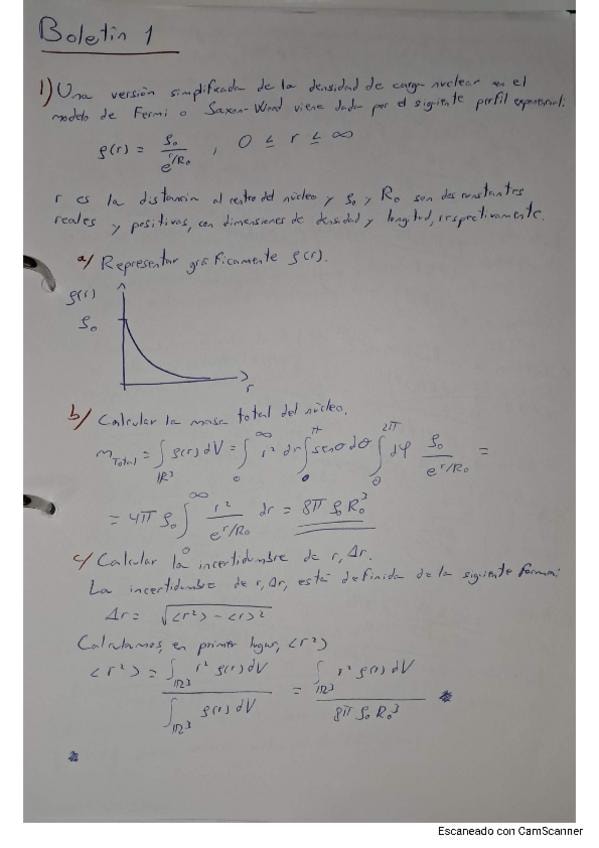 Boletín 1
1) Una versión simplificada de la densidad de carga nuclear en el
modelo de Fermi o Saxon-Wood viene dada por el siguiente perfil exponencial:
ρ(r) = ρ₀ / e^(r/R₀) , 0 ≤ r ≤ ∞
r es la distancia al centro del núcleo y ρ₀ y R₀ son dos constantes
reales y positivas, con dimensiones de densidad y longitud, respectivamente.
a) Representar gráficamente ρ(r).
ρ(r)
ρ₀
r
b) Calcular la masa total del núcleo.
m_Total = ∫_ℝ³ ρ(r) dV = ∫_0^∞ r² dr ∫_0^π senθ dθ ∫_0^2π dφ ρ₀ / e^(r/R₀) =
= 4π ρ₀ ∫_0^∞ r² / e^(r/R₀) dr = 8π ρ₀ R₀³
c) Calcular la incertidumbre de r, Δr.
La incertidumbre de r, Δr, está definida de la siguiente forma:
Δr = √(<r²> - <r>²)
Calculamos, en primer lugar, <r²>
<r²> = ∫_ℝ³ r² ρ(r) dV / ∫_ℝ³ ρ(r) dV = ∫_ℝ³ r² ρ(r) dV / 8π ρ₀ R₀³
Escaneado con CamScanner